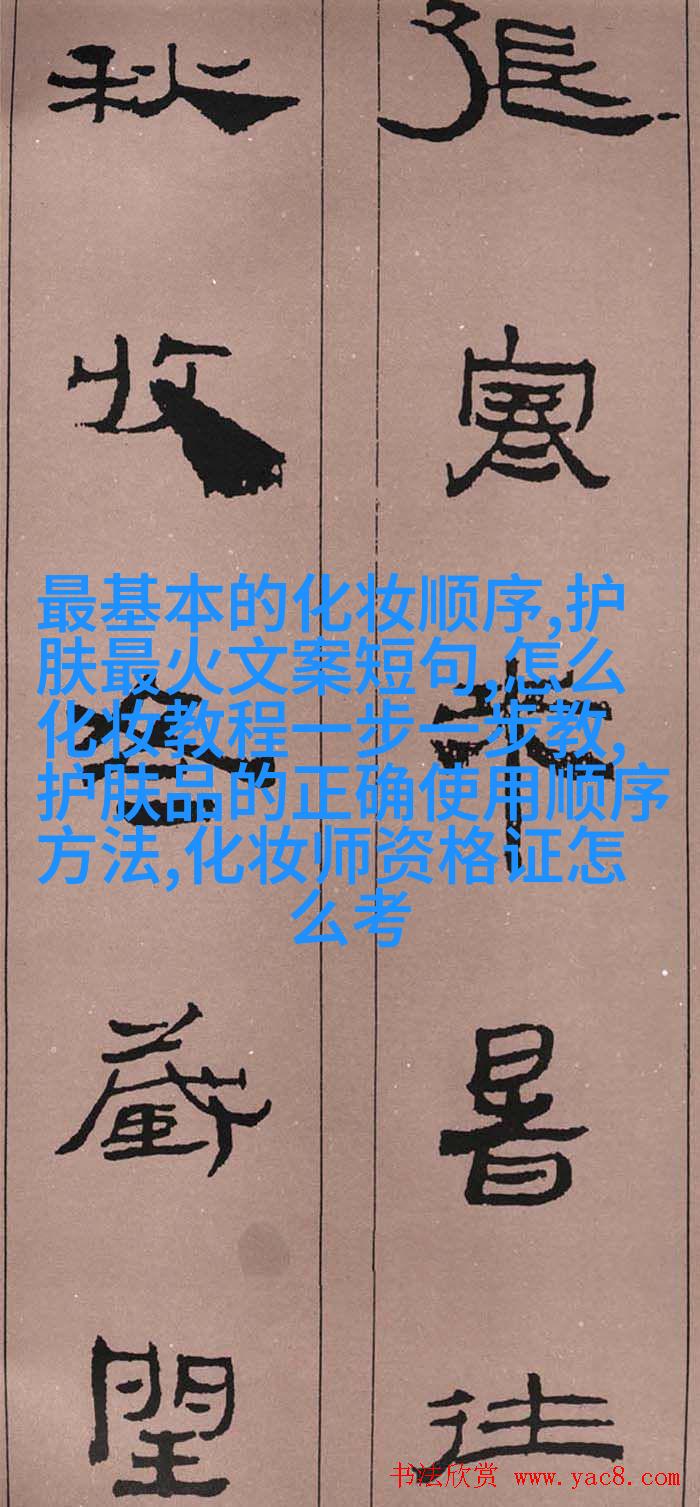 張寒來暑往
秋收冬藏閏
最基本的化妆顺序,护
肤最火文案短句,怎么
化妆教程一步一步教,
护肤品的正确使用顺序
方法,化妆师资格证怎
么考
书法欣赏 www.yac8.com